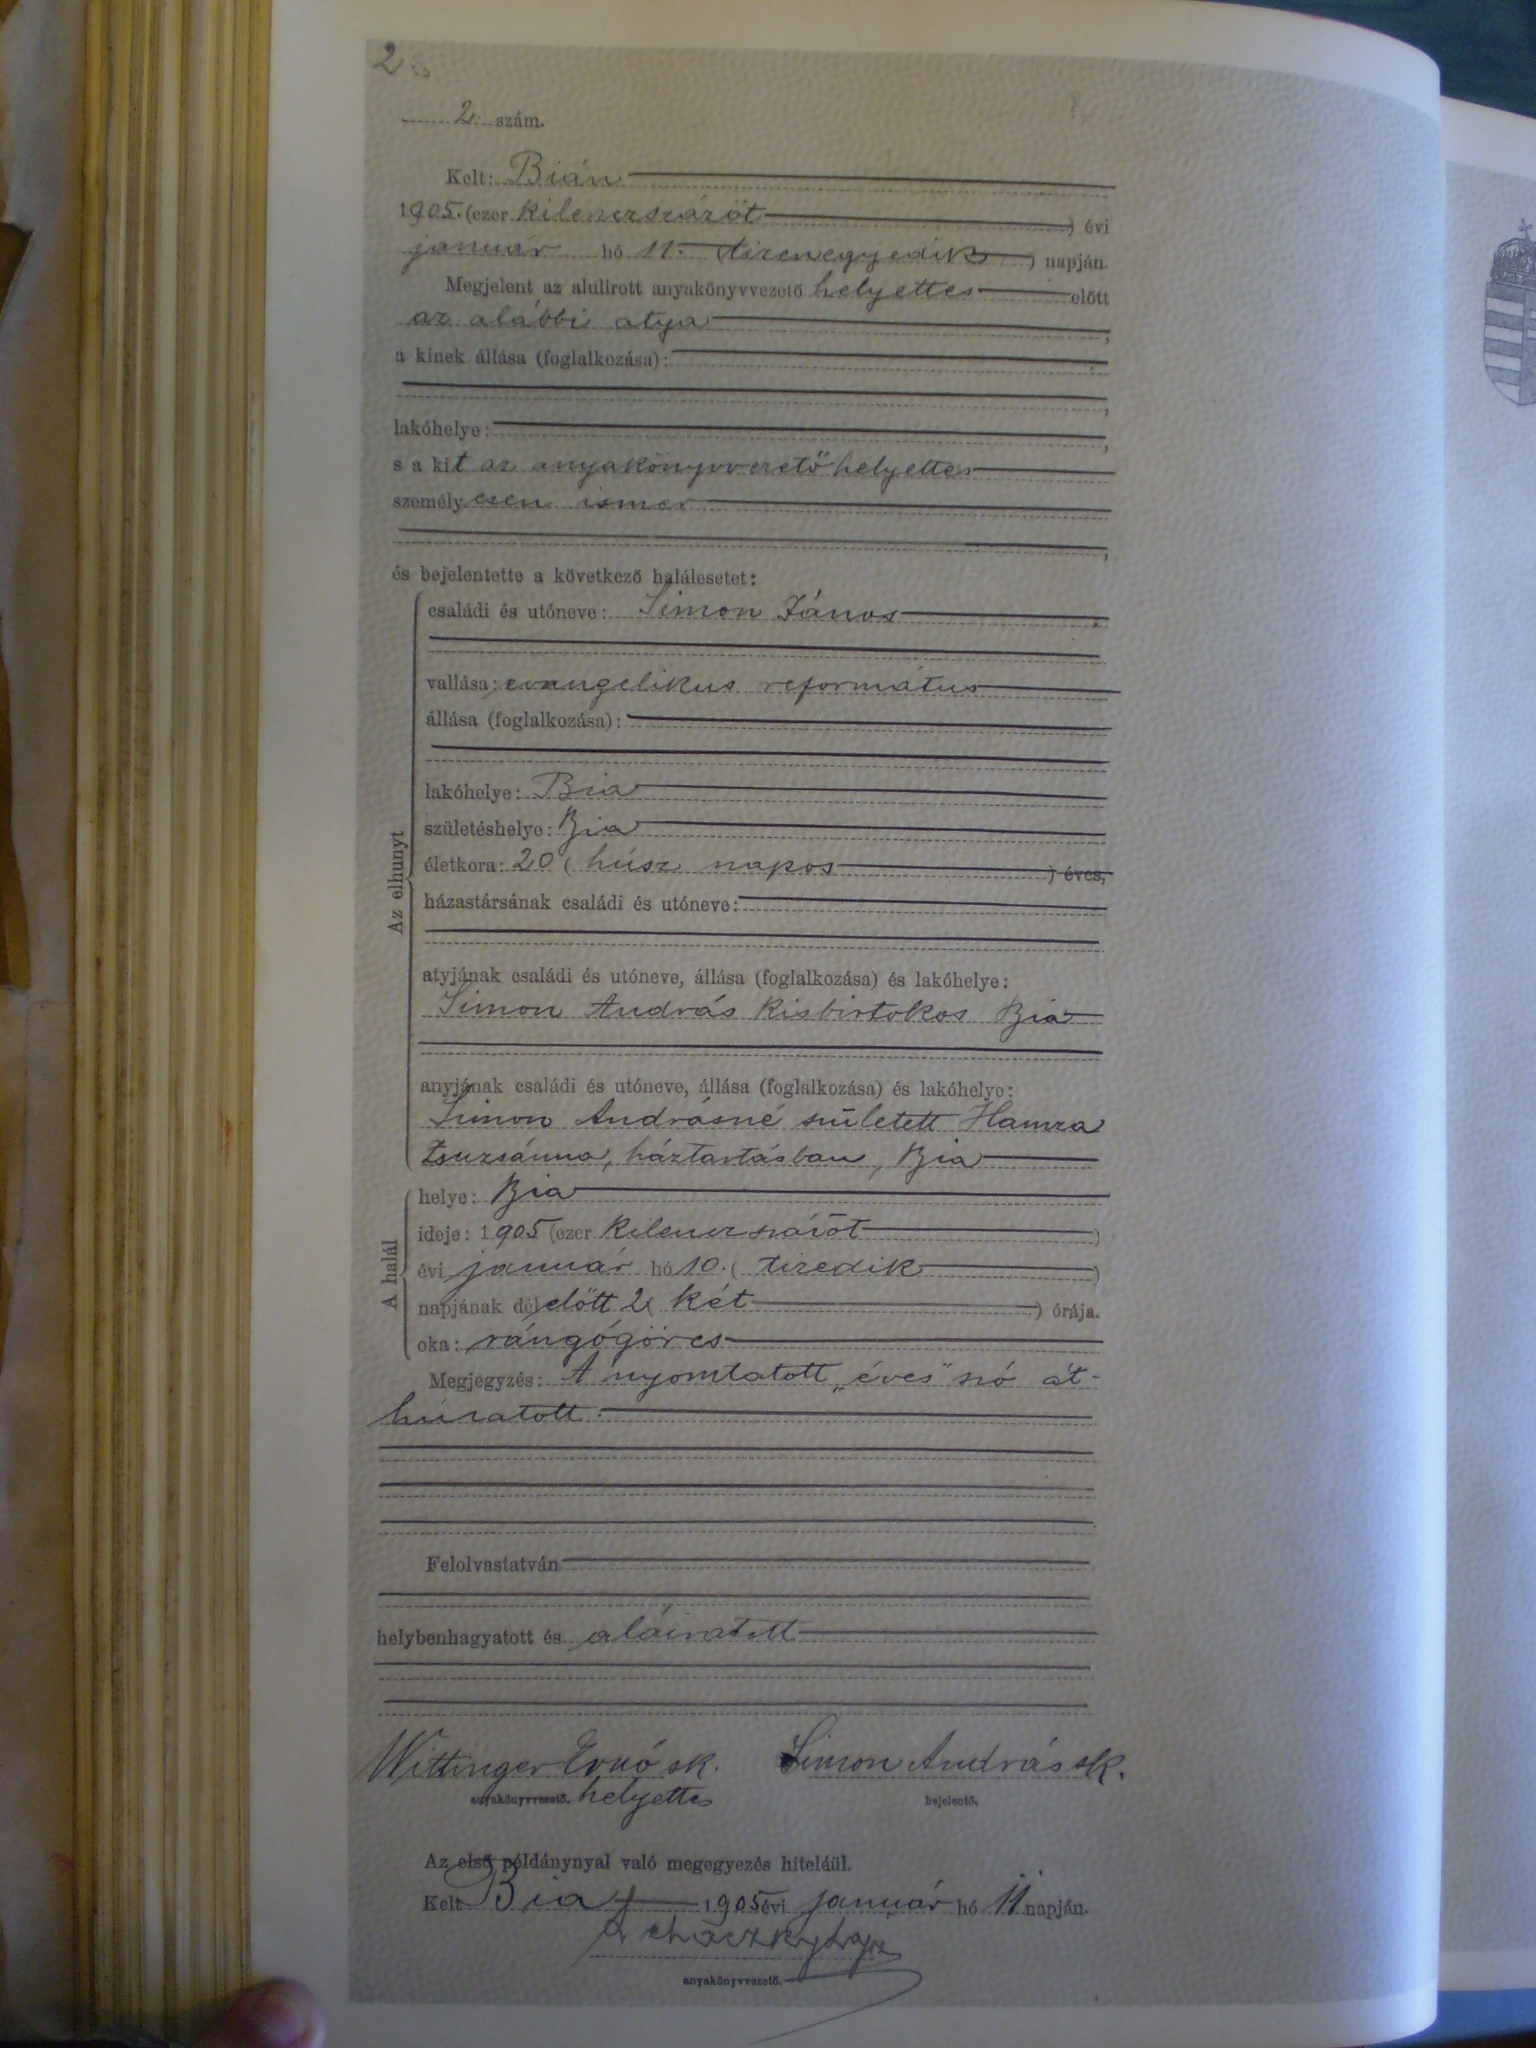 2
2. szám.
Kelt: Bián
1905. (ezer kilenczszázöt ) évi
január hó 11. (tizenegyedik ) napján.
Megjelent az alulirott anyakönyvvezető helyettes előtt
az alábbi atya ,
a kinek állása (foglalkozása):
,
lakóhelye: ,
s a kit az anyakönyvvezető helyettes
személyesen ismer
,
és bejelentette a következő halálesetet:
Az elhunyt
családi és utóneve: Simon János
vallása: evangelikus református
állása (foglalkozása):
lakóhelye: Bia
születéshelye: Bia
életkora: 20 ( húsz napos ) éves,
házastársának családi és utóneve:
atyjának családi és utóneve, állása (foglalkozása) és lakóhelye:
Simon András kisbirtokos Bia
anyjának családi és utóneve, állása (foglalkozása) és lakóhelye:
Simon Andrásné született Hamza
Zsuzsánna, háztartásban, Bia
A halál
helye: Bia
ideje: 1905 (ezer kilenczszázöt )
évi január hó 10. ( tizedik )
napjának délelőtt 2 ( két ) órája.
oka: rángógörcs
Megjegyzés: A nyomtatott „éves" szó át-
húzatott.
Felolvastatván
helybenhagyatott és aláiratott
Wittinger Ernő sk. Simon András sk.
anyakönyvvezető. helyettes bejelentő.
Az első példánynyal való megegyezés hiteléül.
Kelt Bia 1905 évi január hó 11 napján.
anyakönyvvezető.